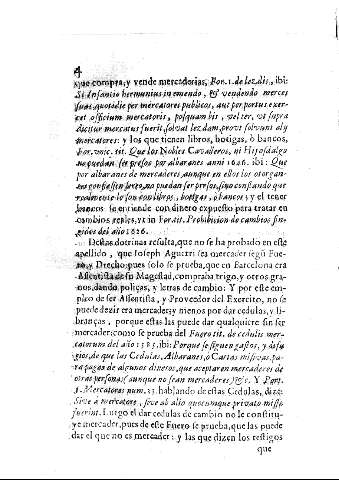 4
que compra, y vende mercaderias, For. 1. de lez. dit., ibi:
Si Infantio hermunius in emendo, & vendendo merces
suas, quotidie per mercatores publicos, aut per portus exer-
cet officium mercatoris, posquam bis, vel ter, vt supra
dicitur mercatus fuerit, solvat lezdam, prout solvunt alij
mercatores: y los que tienen libros, botigas, ò bancos,
For. vnic. tit. Que los Nobles Cavalleros, ni Hijosdalgo
no puedan ser presos por albaranes anni 1626. ibi: Que
por albaranes de mercaderes, aunque en ellos los otorgan-
tes confiessen serlo, no puedan ser presos, sino constando que
realmente lo son con libros, botigas, ò bancos; y el tener
bancos se entiende con dinero expuesto para tratar en
cambios reales, vt in For. tit. Prohibicion de cambios fin-
gidos del año 1626.
Destas doctrinas resulta, que no se ha probado en este
apellido, que Joseph Aguerri sea mercader segũ Fue-
ro, y Drecho, pues solo se prueba, que en Barcelona era
Assentista de su Magestad, compraba trigo, y otros gra-
nos, dando poliças, y letras de cambio: Y por este em-
pleo de ser Assentista, y Proveedor del Exercito, no se
puede dezir era mercader; y menos por dar cedulas, y li-
branças, porque estas las puede dar qualquiere sin ser
mercader; como se prueba del Fuero tit. de cedulis mer-
catorum del año 1585. ibi: Porque se siguen gastos, y desu-
gios, de que las Cedulas, Albaranes, ò Cartas missivas, pa-
ra pagas de algunos dineros, que aceptaren mercaderes de
otras personas (aunque no sean mercaderes) &c. Y Port.
§. Mercatores num. 23. hablando de estas Cedulas, dize:
Sive à mercatore, sive ab alio quocumque privato missæ
fuerint. Luego el dar cedulas de cambio no le constitu-
ye mercader, pues de este Fuero se prueba, que las puede
dar el que no es mercader: y las que dizen los testigos
que